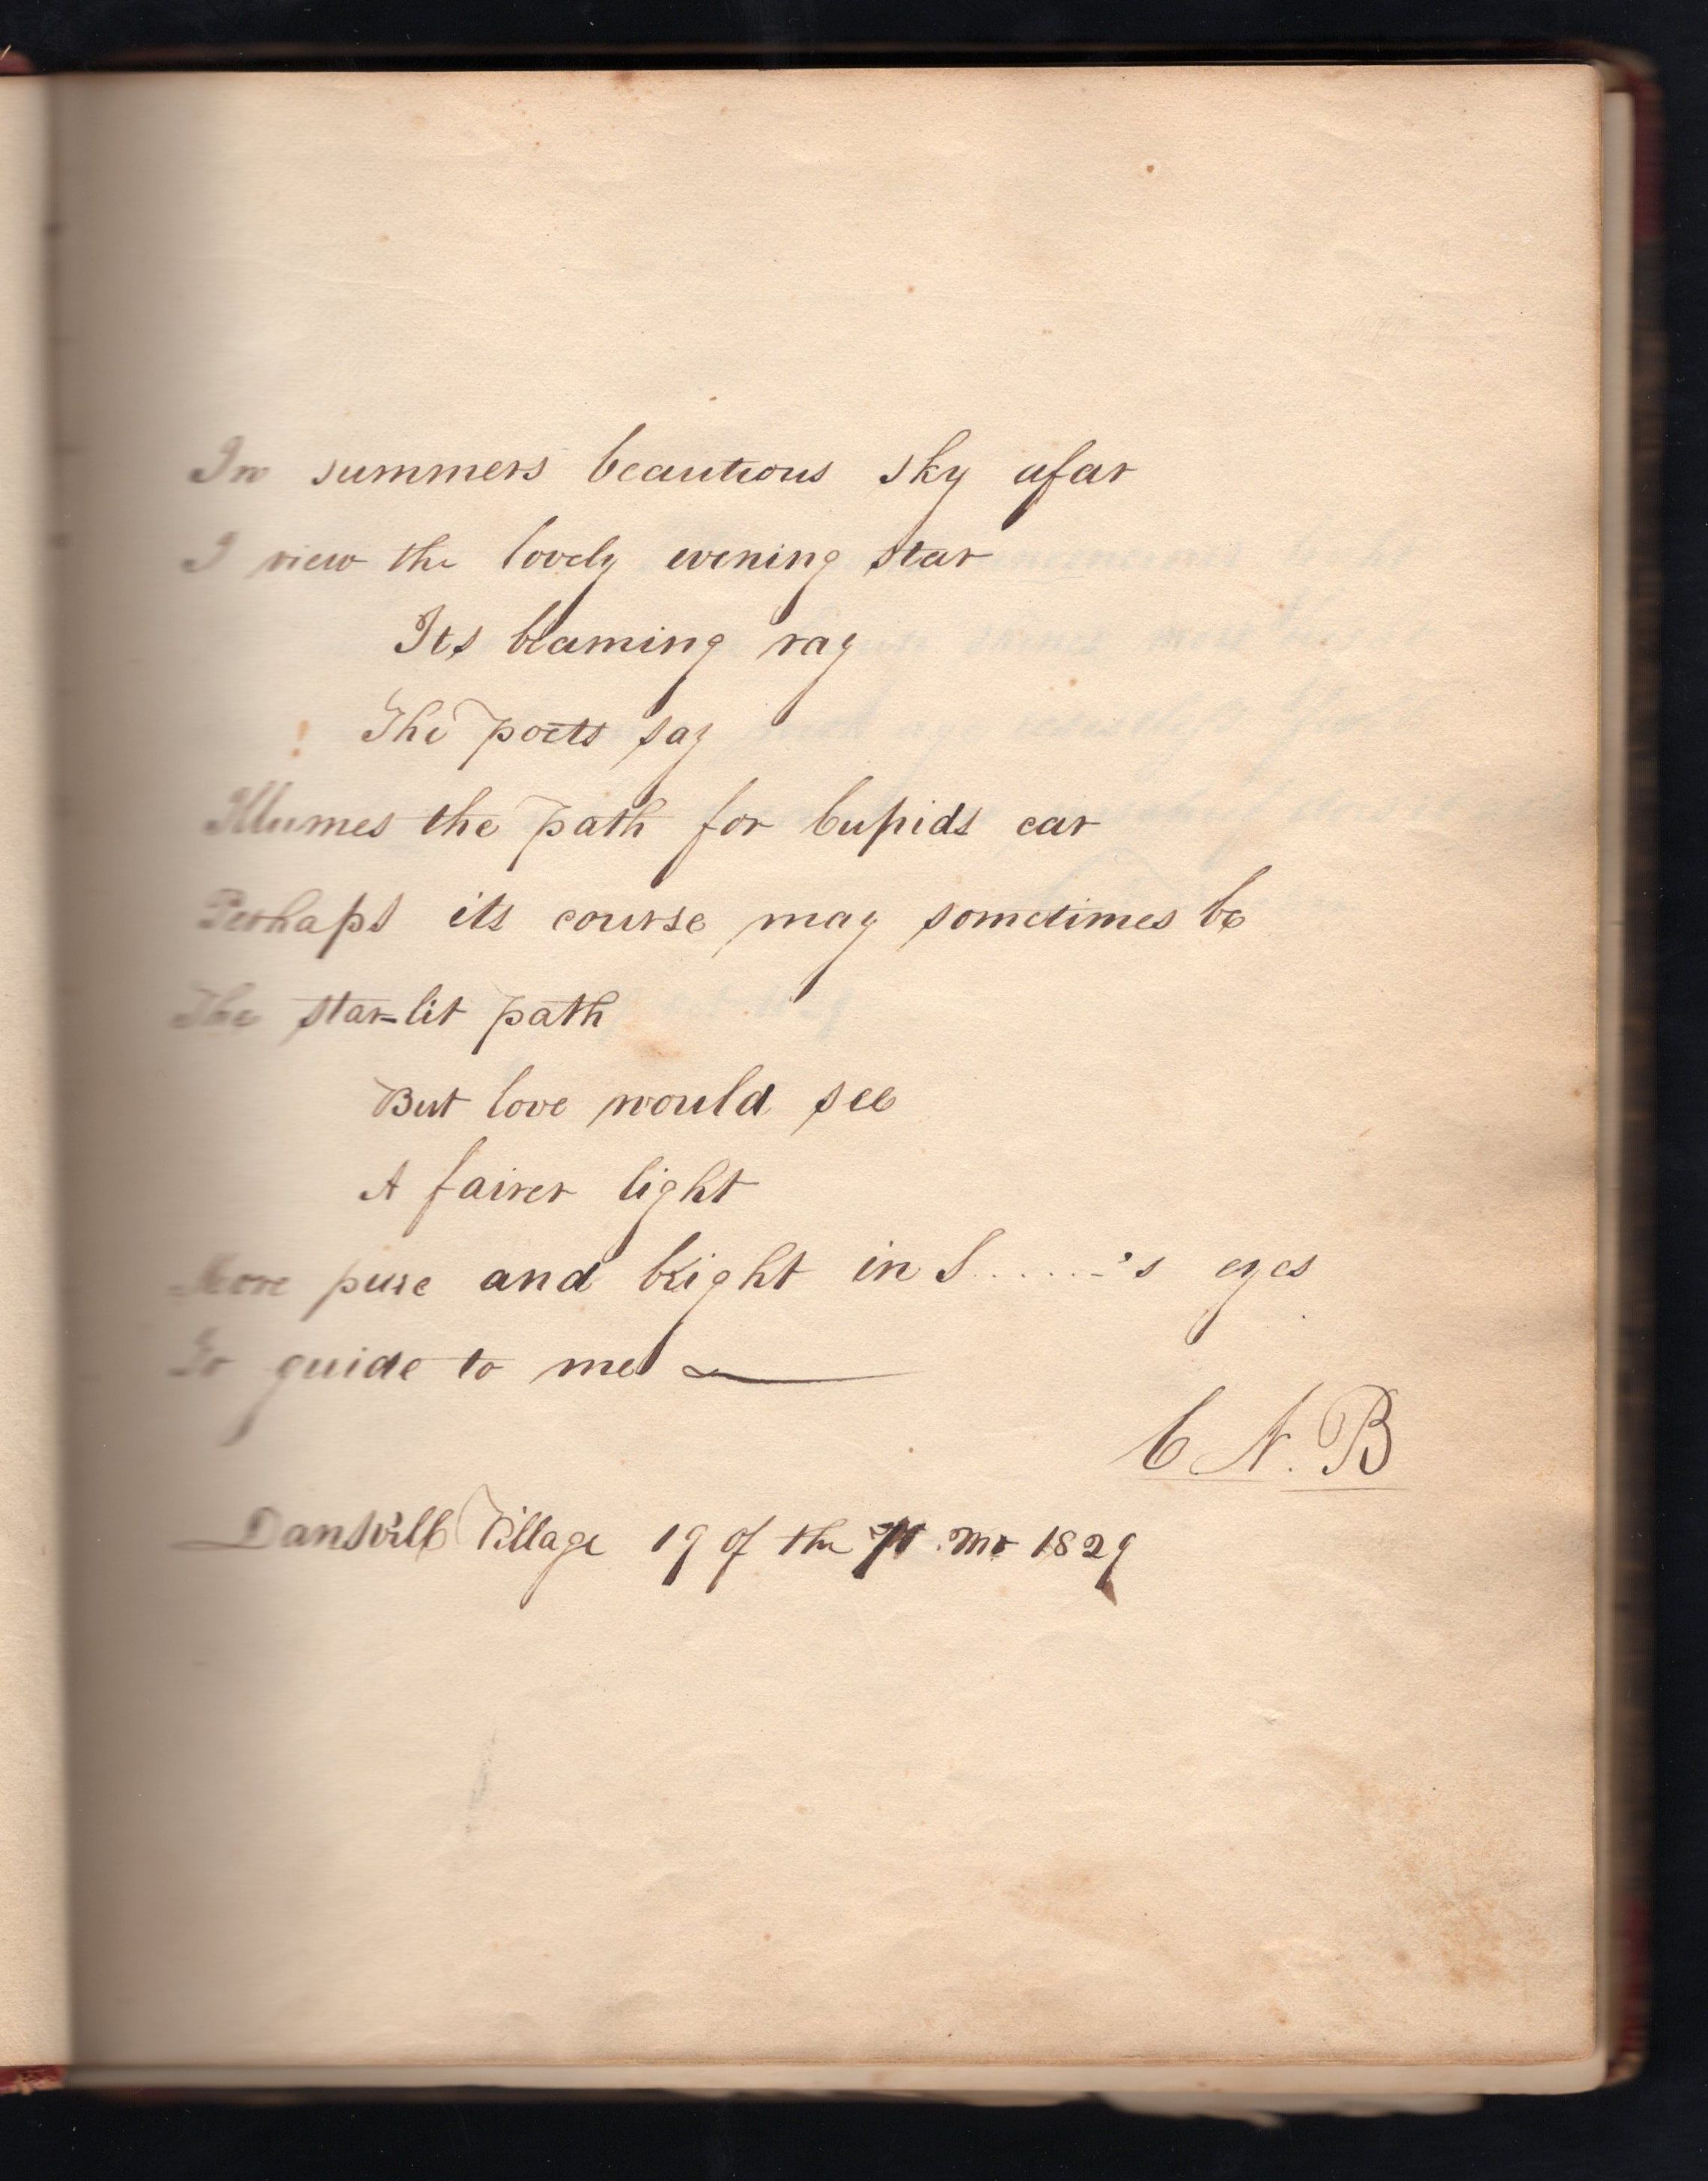 In summers beautious sky afar
I view the lovely evening star
Its beaming ray
The poets say
Illumes the path for Cupids car
Perhaps its course may sometimes be
The star-lit path
But love would see
A fairer light
More pure and bright in S......'s eyes
To guide to me
C N. B
Dansvill Village 19 of the Mo 1829